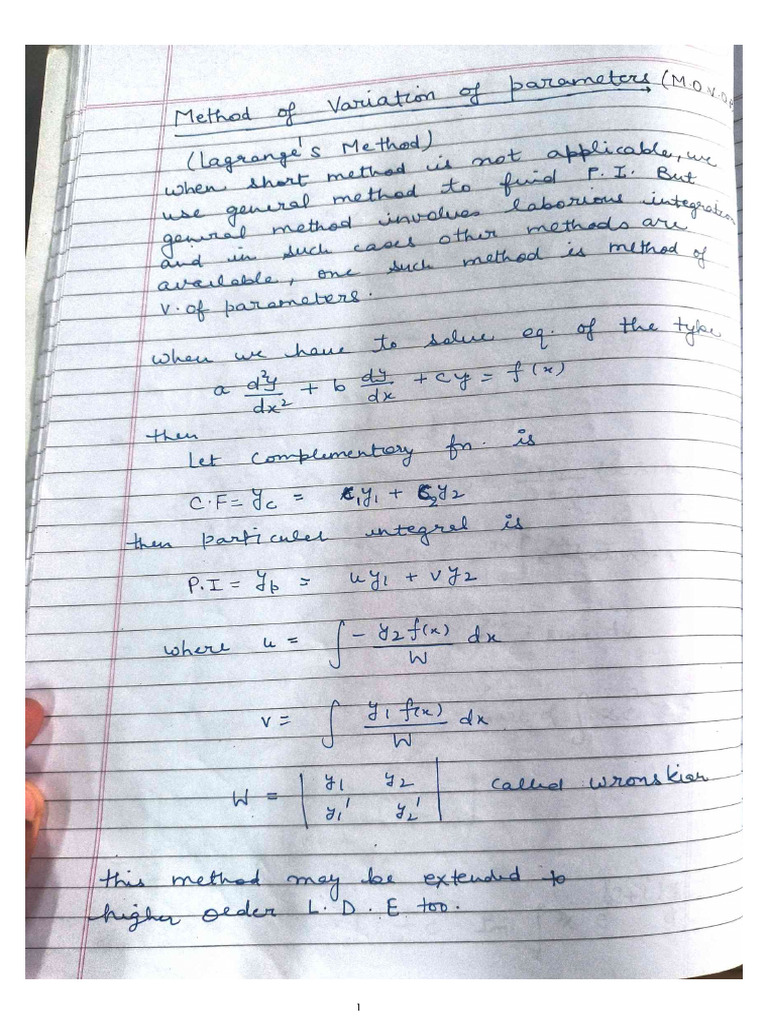 Method of Variation of parameters (M.O.V.OP
(Lagrange's Method)
when short method is not applicable, we
use general method to find P.I. But
general method involves laborious integration
and in such cases other methods are
available, one such method is method of
V. of parameters.
when we have to solve eq. of the type
a d²y/dx² + b dy/dx + cy = f(x)
then
Let complementary fn. is
C.F = yc = c₁y₁ + c₂y₂
then particular integral is
P.I = yp = uy₁ + vy₂
where u = ∫ - y₂ f(x)/W dx
v = ∫ y₁ f(x)/W dx
W = | y₁ y₂ | called wronskian
| y₁' y₂' |
this method may be extended to
higher order L.D.E too.
1